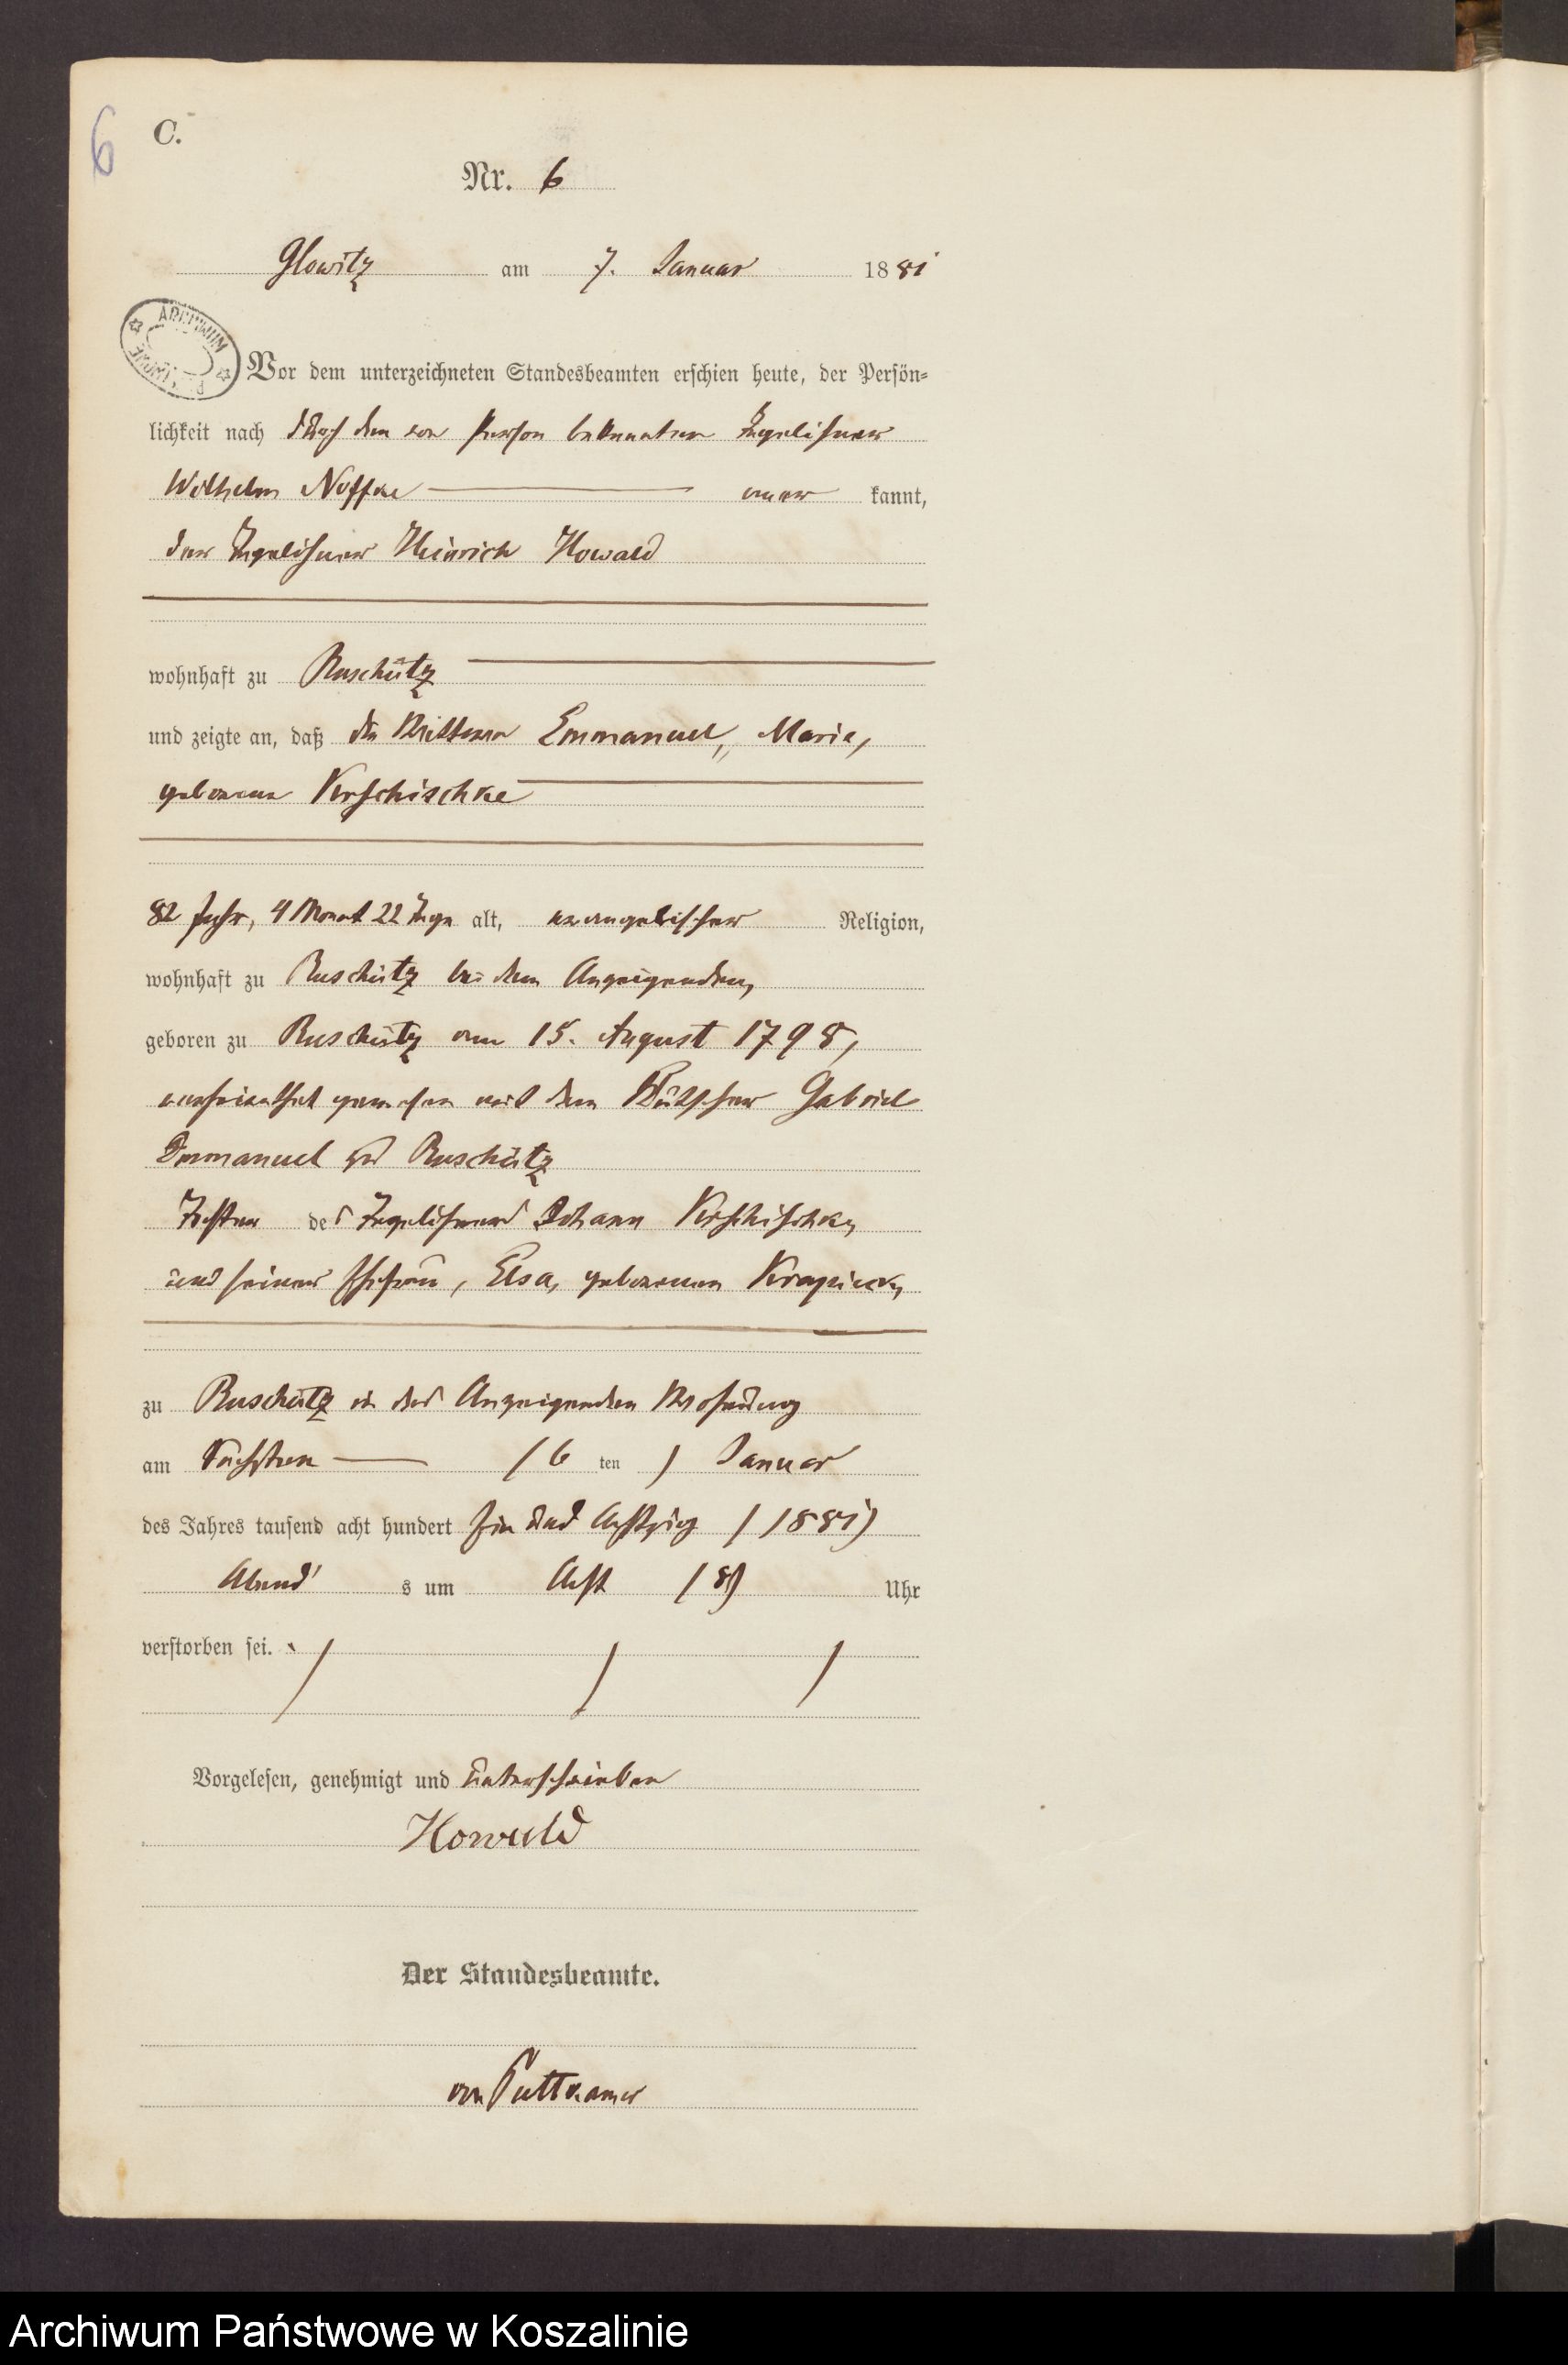 6
C.
Nr. 6
Glowitz am 7. Januar 1881
ARCHIWUM
Vor dem unterzeichneten Standesbeamten erschien heute, der Persön=
lichkeit nach durch den von Person bekannten Tagelöhner
Wilhelm Noffke anerkannt,
der Tagelöhner Heinrich Howald
wohnhaft zu Ruschütz
und zeigte an, daß die Wittwe Emmanuel, Marie,
geborene Kerschischke
82 Jahr, 4 Monat 22 Tage alt, evangelischer Religion,
wohnhaft zu Ruschütz bei dem Anzeigenden,
geboren zu Ruschütz am 15. August 1798,
verheirathet gewesen mit dem Gabriel
Emmanuel zu Ruschütz
Tochter des Tagelöhners Johann Kerschischke,
und seiner Ehefrau, Elsa, geborenen
zu Ruschütz in des Anzeigenden Wohnung
am Sechsten (6 ten) Januar
des Jahres tausend acht hundert Ein und Achtzig (1881)
Abend s um Acht (8) Uhr
verstorben sei.
Vorgelesen, genehmigt und unterschrieben
Howald
Der Standesbeamte.
von Puttkamer
Archiwum Państwowe w Koszalinie